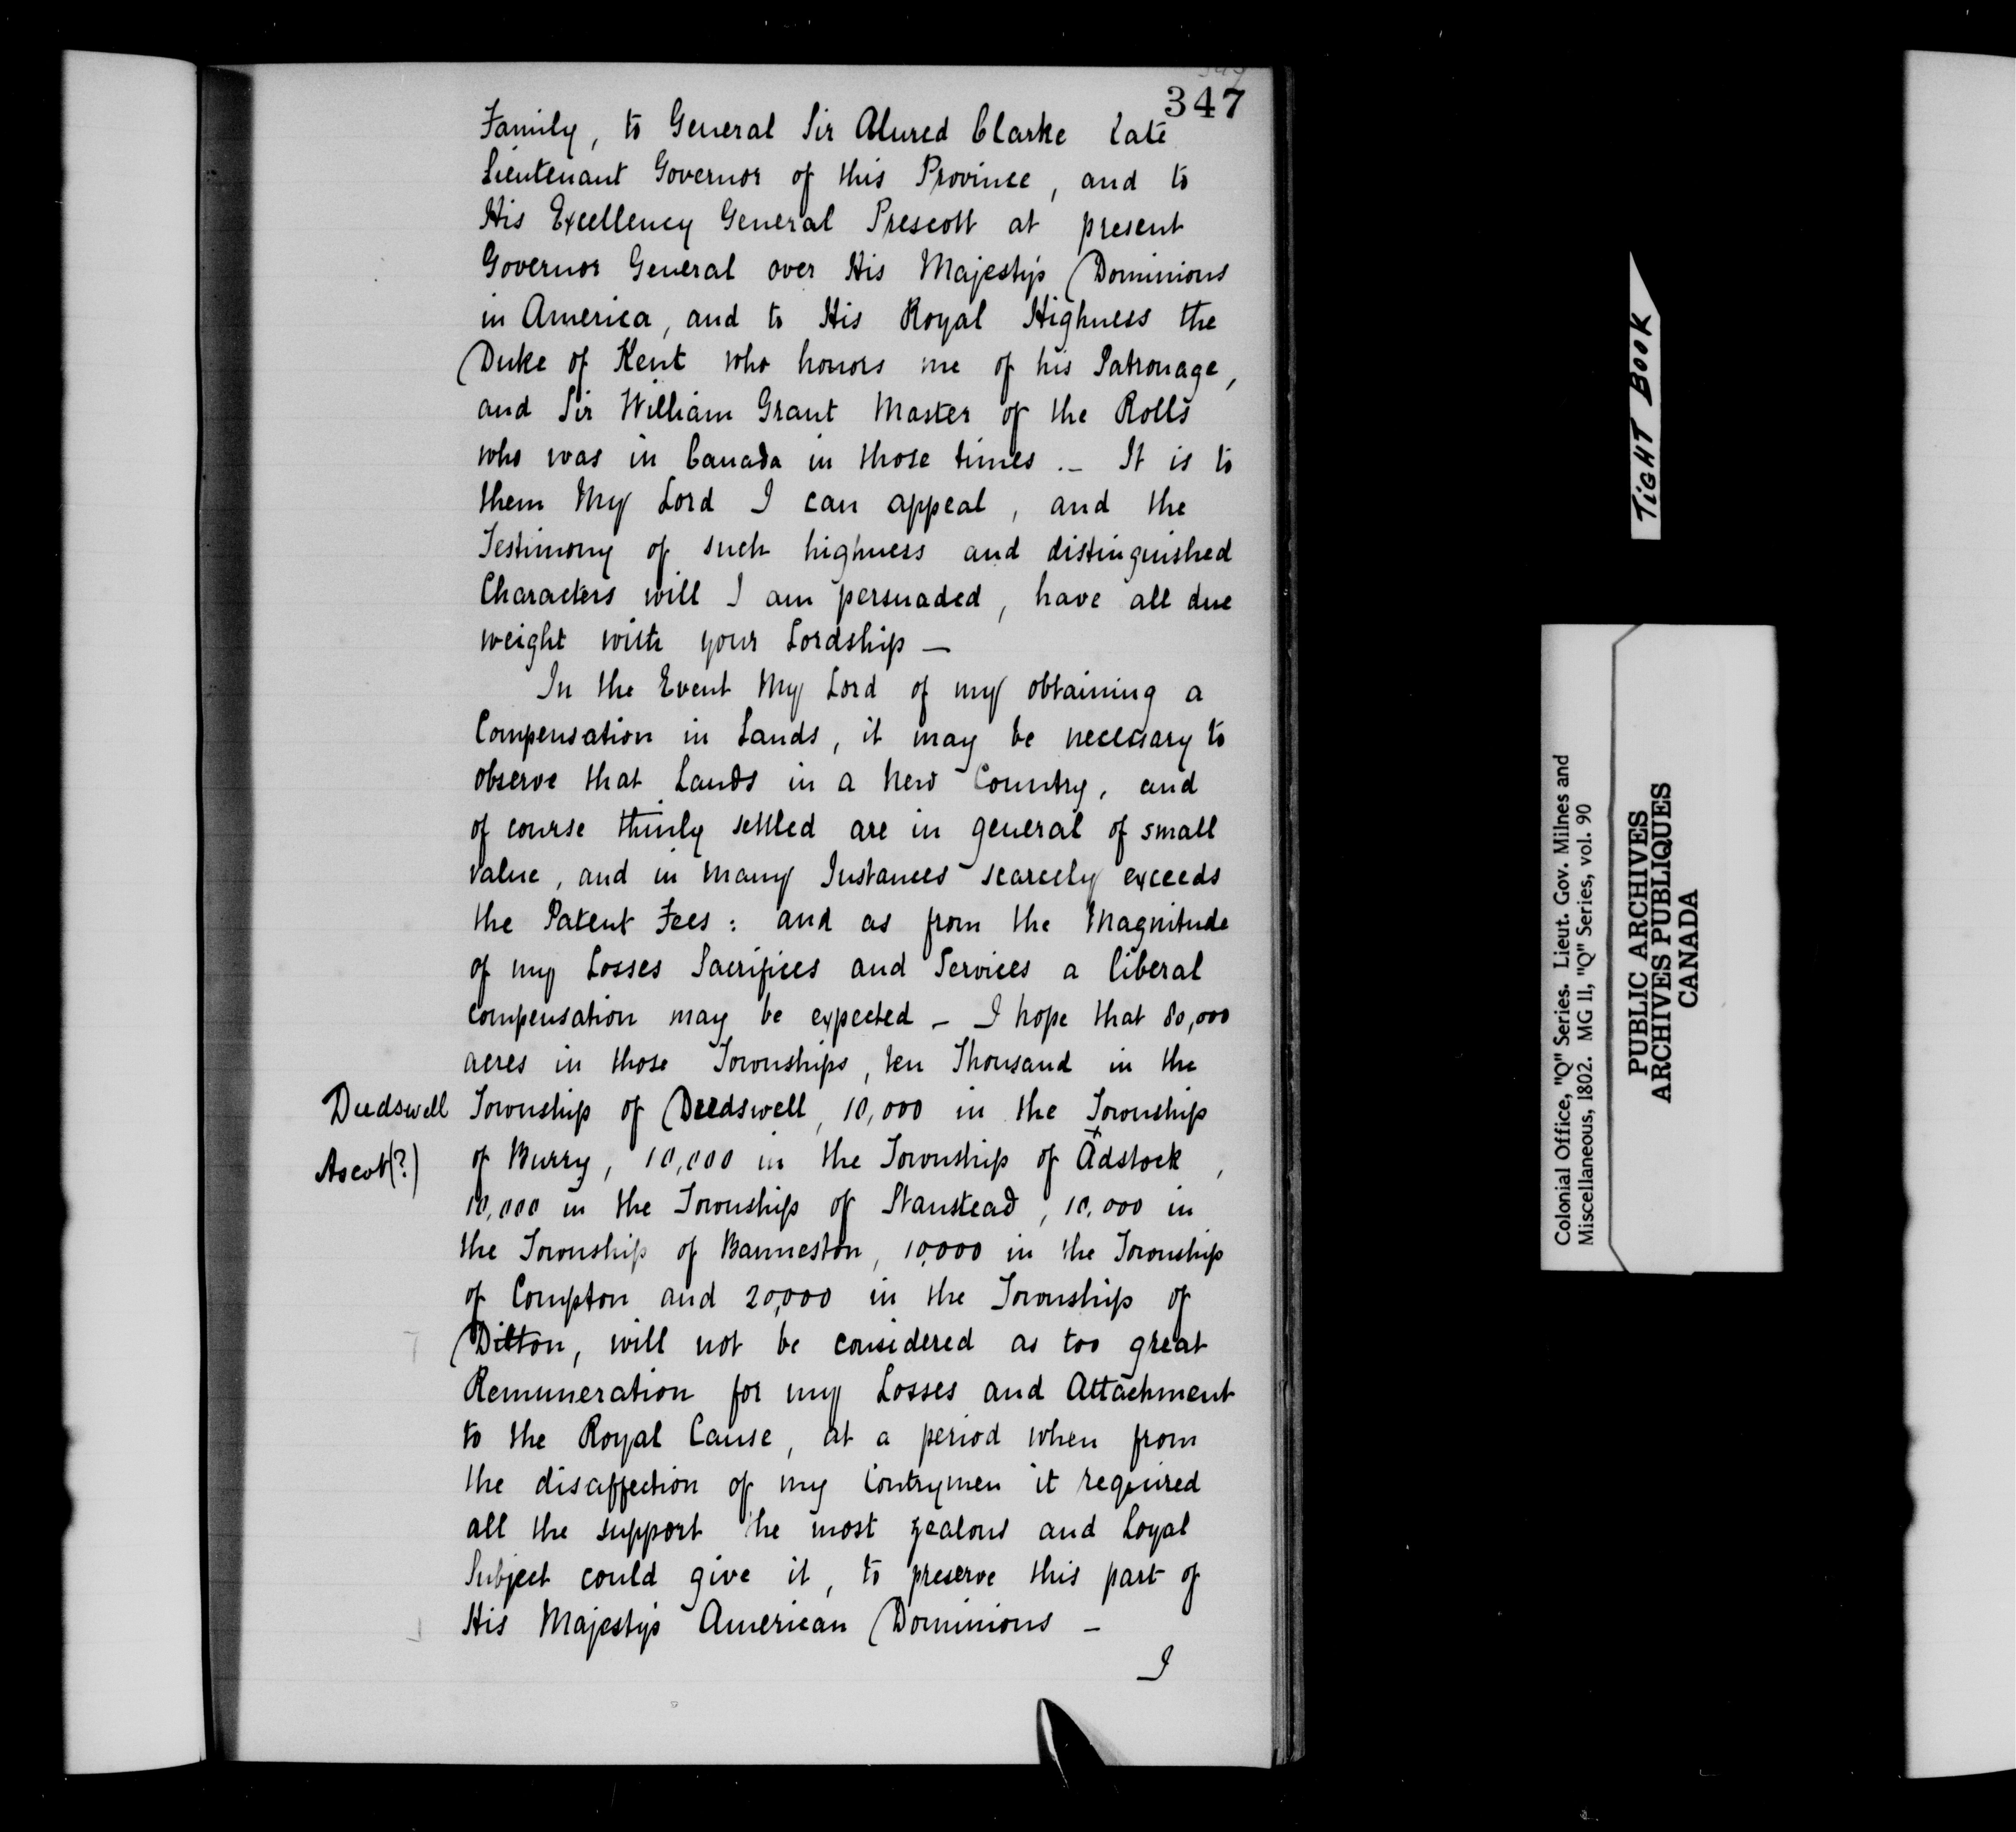 347
Family, to General Sir Alured Clarke late
Lieutenant Governor of this Province, and to
His Excellency General Prescott at present
Governor General over His Majesty's Dominions
in America, and to His Royal Highness the
Duke of Kent who honors me of his Patronage,
and Sir William Grant Master of the Rolls
who was in Canada in those times.- It is to
them My Lord I can appeal, and the
Testimony of such highness and distinguished
Characters will I am persuaded, have all due
weight with your Lordship —
In the Event My Lord of my obtaining a
Compensation in Lands, it may be necessary to
observe that Lands in a new Country, and
of course thinly settled are in general of small
value, and in many Instances scarcely exceeds
the Patent Fees: and as from the Magnitude
of my Losses Sacrifices and Services a liberal
compensation may be expected - I hope that 80,000
acres in those Townships, ten Thousand in the
Dudswell Township of Deedswell, 10,000 in the Township
Ascot(?) of Burry, 10,000 in the Township of Adstock,
10,000 in the Township of Stanstead, 10,000 in
the Township of Banneston, 10,000 in the Township
of Compton and 20,000 in the Township of
Ditton, will not be considered as too great
Remuneration for my Losses and Attachment
to the Royal Cause, at a period when from
the disaffection of my Contrymen it required
all the support the most zealous and Loyal
Subject could give it, to preserve this part of
His Majesty's American Dominions -
I
TIGHT BOOK
Colonial Office, "Q" Series. Lieut. Gov. Milnes and
Miscellaneous, 1802. MG 11, "Q" Series, vol. 90
PUBLIC ARCHIVES
ARCHIVES PUBLIQUES
CANADA